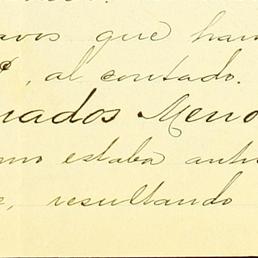 avos que han
, al contado.
uados Meno
mo estaba anti
, resultando